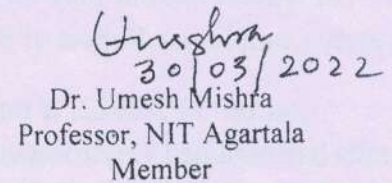 Umishra
30/03/2022
Dr. Umesh Mishra
Professor, NIT Agartala
Member